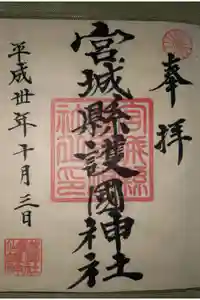 奉拝
宮城縣護國神社
平成卅年十月三日